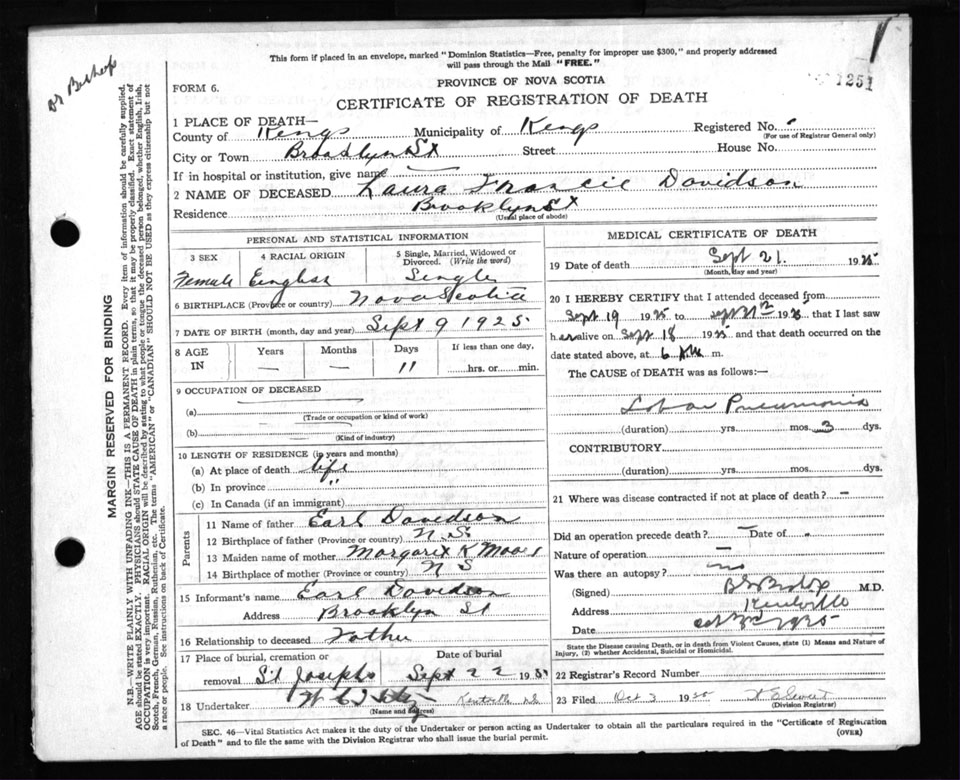 Dr Bishop
This form if placed in an envelope, marked "Dominion Statistics—Free, penalty for improper use $300," and properly addressed
will pass through the Mail "FREE."
1251
FORM 6.
PROVINCE OF NOVA SCOTIA
CERTIFICATE OF REGISTRATION OF DEATH
1 PLACE OF DEATH—
County of Kings Municipality of Kings Registered No.
(For use of Registrar General only)
City or Town Brooklyn St Street House No.
If in hospital or institution, give name
2 NAME OF DECEASED Laura Francie Davidson
Residence Brooklyn St
(Usual place of abode)
PERSONAL AND STATISTICAL INFORMATION
3 SEX 4 RACIAL ORIGIN 5 Single, Married, Widowed or Divorced. (Write the word)
Female English Single
6 BIRTHPLACE (Province or country) Nova Scotia
7 DATE OF BIRTH (month, day and year) Sept 9 1925
8 AGE IN Years Months Days If less than one day,
— — 11 hrs. or min.
9 OCCUPATION OF DECEASED
(a)
(Trade or occupation or kind of work)
(b)
(Kind of industry)
10 LENGTH OF RESIDENCE (in years and months)
(a) At place of death life
(b) In province "
(c) In Canada (if an immigrant)
Parents
11 Name of father Earl Davidson
12 Birthplace of father (Province or country) N. S
13 Maiden name of mother Margaret K
14 Birthplace of mother (Province or country) N S
15 Informant's name Earl Davidson
Address Brooklyn St
16 Relationship to deceased Father
17 Place of burial, cremation or Date of burial
removal St Josephs Sept 22 19
18 Undertaker
(Name and address)
MEDICAL CERTIFICATE OF DEATH
19 Date of death Sept 21. 1925
(Month, day and year)
20 I HEREBY CERTIFY that I attended deceased from
Sept 19 1925 to Sept 1925 that I last saw
her alive on Sept 18 1925 and that death occurred on
date stated above, at 6 m.
The CAUSE of DEATH was as follows:—
Lobar Pneumonia
(duration) yrs. mos. 3 dys.
CONTRIBUTORY.
(duration) yrs. mos. dys.
21 Where was disease contracted if not at place of death? —
Did an operation precede death? — Date of
Nature of operation —
Was there an autopsy? no
(Signed) Bishop M.D.
Address Kentville
Date 1925
State the Disease causing Death, or in death from Violent Causes, state (1) Means and Nature of
Injury, (2) whether Accidental, Suicidal or Homicidal.
22 Registrar's Record Number
23 Filed Oct 3 19
(Division Registrar)
SEC. 46—Vital Statistics Act makes it the duty of the Undertaker or person acting as Undertaker to obtain all the particulars required in the "Certificate of Registration
of Death" and to file the same with the Division Registrar who shall issue the burial permit.
(OVER)
MARGIN RESERVED FOR BINDING
N.B.—WRITE PLAINLY WITH UNFADING INK—THIS IS A PERMANENT RECORD. Every item of information should be carefully supplied.
AGE should be stated EXACTLY. PHYSICIANS should STATE CAUSE OF DEATH in plain terms, so that it may be properly classified. Exact statement of
OCCUPATION is very important. RACIAL ORIGIN will be described by stating to what people or tongue the deceased person belonged, whether English, Irish,
Scotch, French, German, Russian, Ruthenian, etc. The terms "AMERICAN" or "CANADIAN" SHOULD NOT BE USED as they express citizenship but not
a race or people. See instructions on back of Certificate.